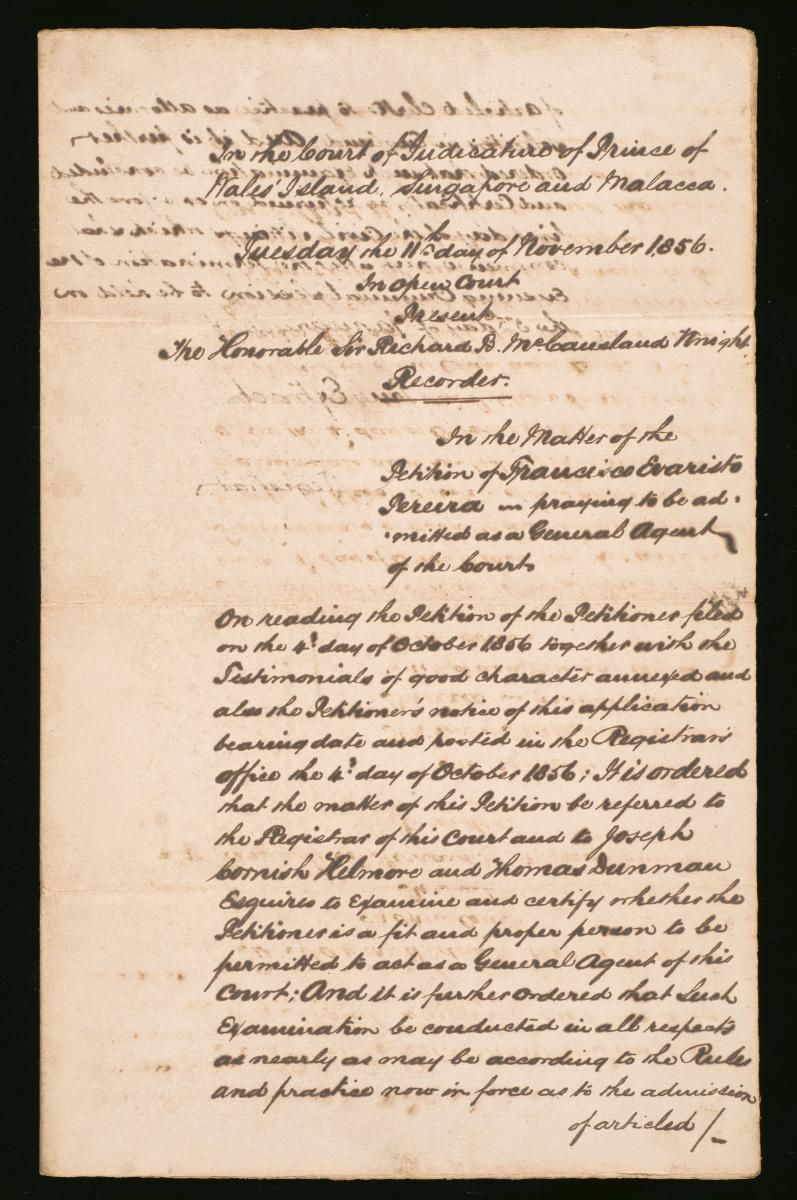 In the Court of Judicature of Prince of
Wales' Island, Singapore and Malacca.
Tuesday the 11th day of November 1856.
In open Court
Present
The Honorable Sir Richard B. McCausland Knight
Recorder.
In the Matter of the
Petition of Francisco Evaristo
Pereira praying to be ad-
-mitted as a General Agent
of the Court.
On reading the Petition of the Petitioner filed
on the 4th day of October 1856 together with the
Testimonials of good character annexed and
also the Petitioner's notice of this application
bearing date and posted in the Registrar's
office the 4th day of October 1856; It is ordered
that the matter of this Petition be referred to
the Registrar of this Court and to Joseph
Cornish Helmore and Thomas Dunman
Esquires to Examine and certify whether the
Petitioner is a fit and proper person to be
permitted to act as a General Agent of this
Court; And it is further ordered that Such
Examination be conducted in all respects
as nearly as may be according to the Rules
and practice now in force as to the admission
of articled /-